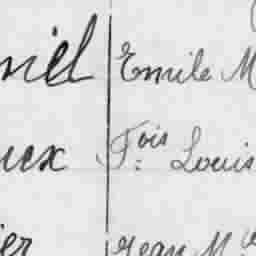 niel Emile M
uex F.ois Louis
ier Jean M.ie